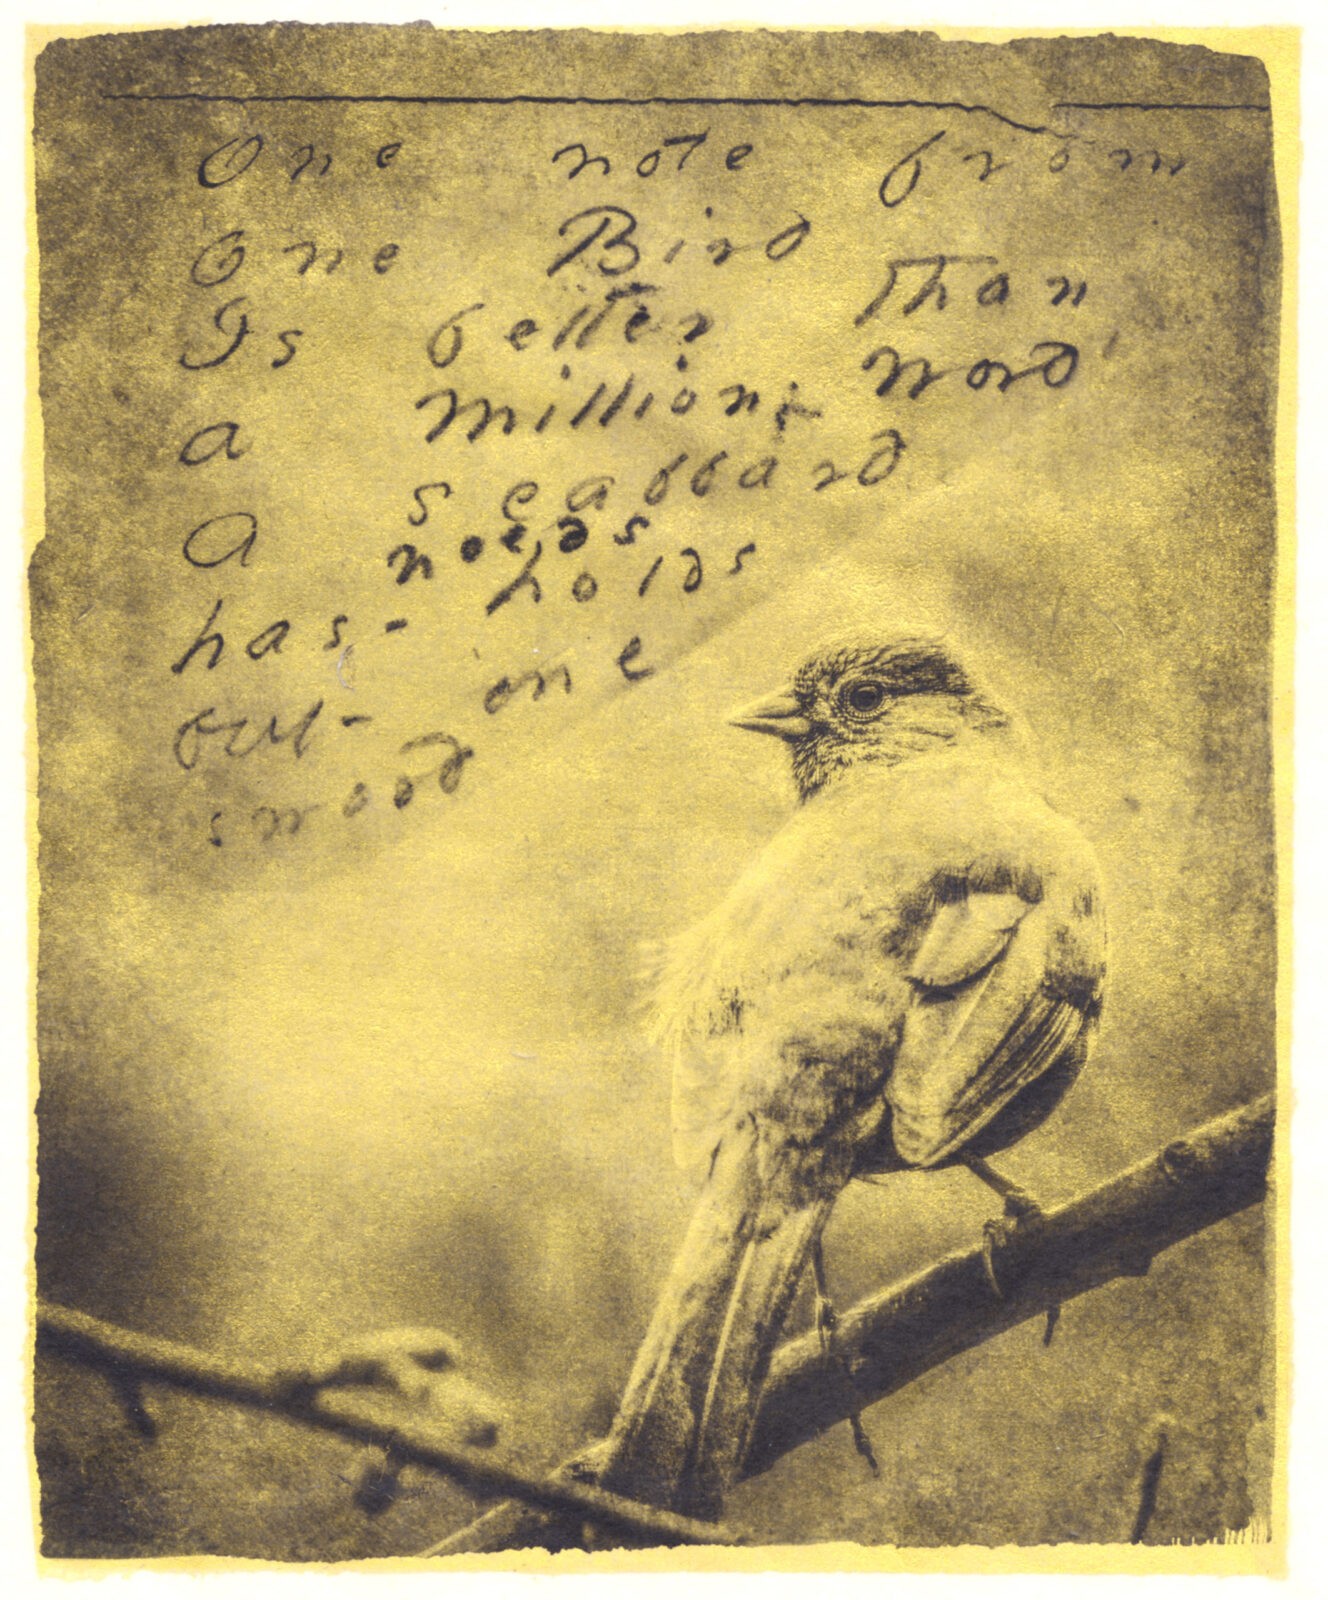 One note from
One Bird
Is better than
a million word
A scabbard
needs
has- holds
but- one
sword